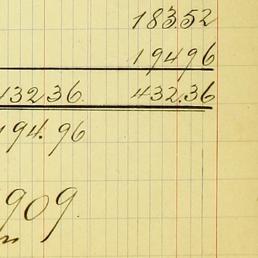 18352
19496
432.36 432.36
194.96
1909